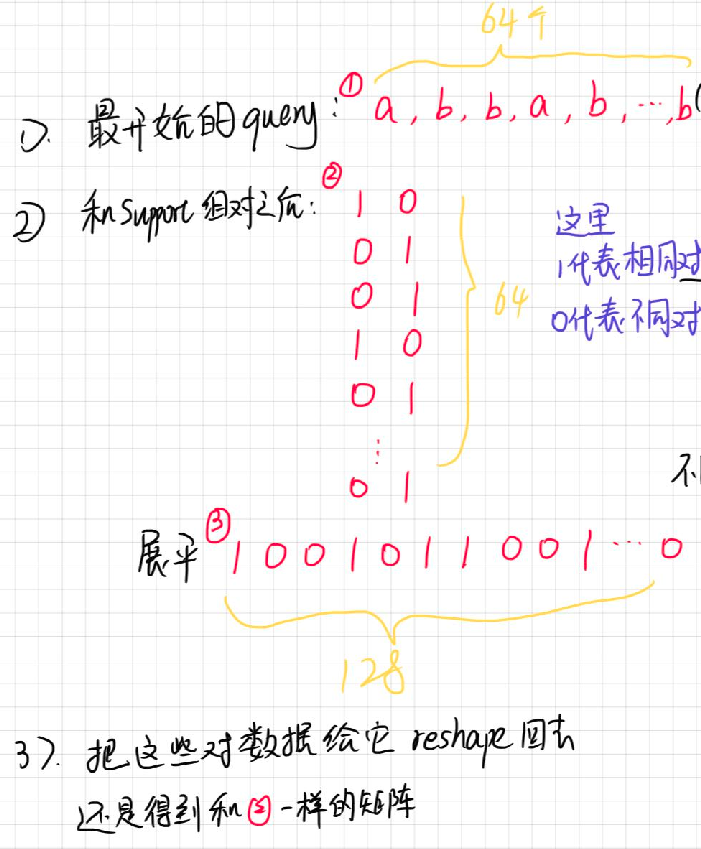 64个
1). 最开始的query: ① a, b, b, a, b, …, b(
2) 和Support组对之后: ② 1 0
0 1
0 1
1 0
0 1
⋮
0 1
64
这里
1代表相同对
0代表不同对
不
展平 ③ 1 0 0 1 0 1 1 0 0 1 … 0
128
3). 把这些对数据给它 reshape 回去
还是得到和②一样的矩阵